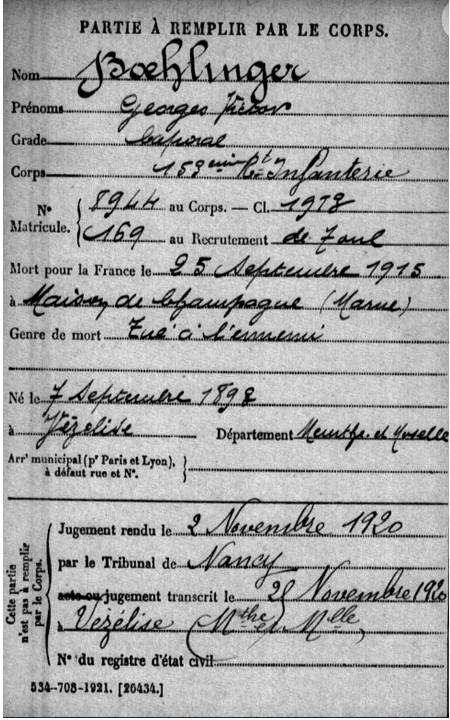 PARTIE À REMPLIR PAR LE CORPS.
Nom Bœhlinger
Prénoms Georges Victor
Grade Caporal
Corps 153eme Rt Infanterie
N° Matricule. { 8944 au Corps. — Cl. 1918
169 au Recrutement de Toul
Mort pour la France le 25 Septembre 1915
à Maison de Champagne (Marne)
Genre de mort Tué à l'ennemi
Né le 7 Septembre 1898
à Vézelise Département Meurthe et Moselle
Arrt municipal (pr Paris et Lyon),
à défaut rue et N°.
Cette partie n'est pas à remplir par le Corps.
Jugement rendu le 2 Novembre 1920
par le Tribunal de Nancy
acte ou jugement transcrit le Novembre 1920
à Vézélise (Mthe / Mlle)
N° du registre d'état civil
534-708-1921. [26434.]